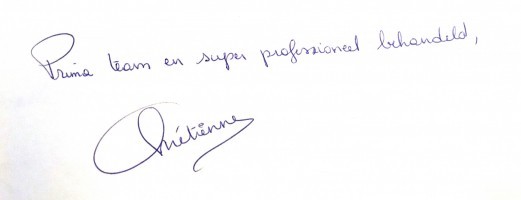 Prima team en super professioneel behandeld,
Chrétienne